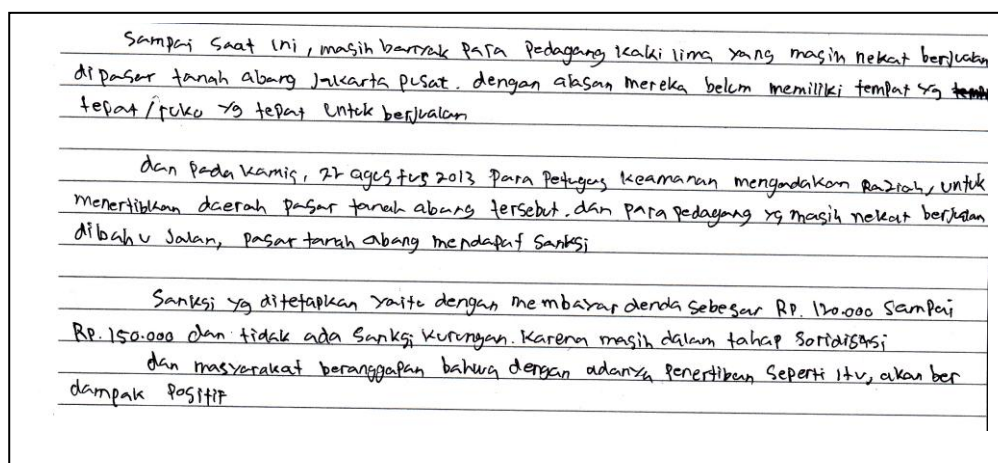 Sampai saat ini, masih banyak para pedagang kaki lima yang masih nekat berjualan
dipasar tanah abang Jakarta pusat. dengan alasan mereka belum memiliki tempat yg
tepat/ruko yg tepat untuk berjualan
dan pada kamis, 22 agustus 2013 para petugas keamanan mengadakan Raziah, untuk
menertibkan daerah pasar tanah abang tersebut. dan para pedagang yg masih nekat berjualan
dibahu Jalan, pasar tanah abang mendapat Sanksi
Sanksi yg ditetapkan yaitu dengan membayar denda sebesar Rp. 120.000 Sampai
Rp. 150.000 dan tidak ada Sanksi kurungan. Karena masih dalam tahap
dan masyarakat beranggapan bahwa dengan adanya penertiban seperti itu, akan ber
dampak Positif